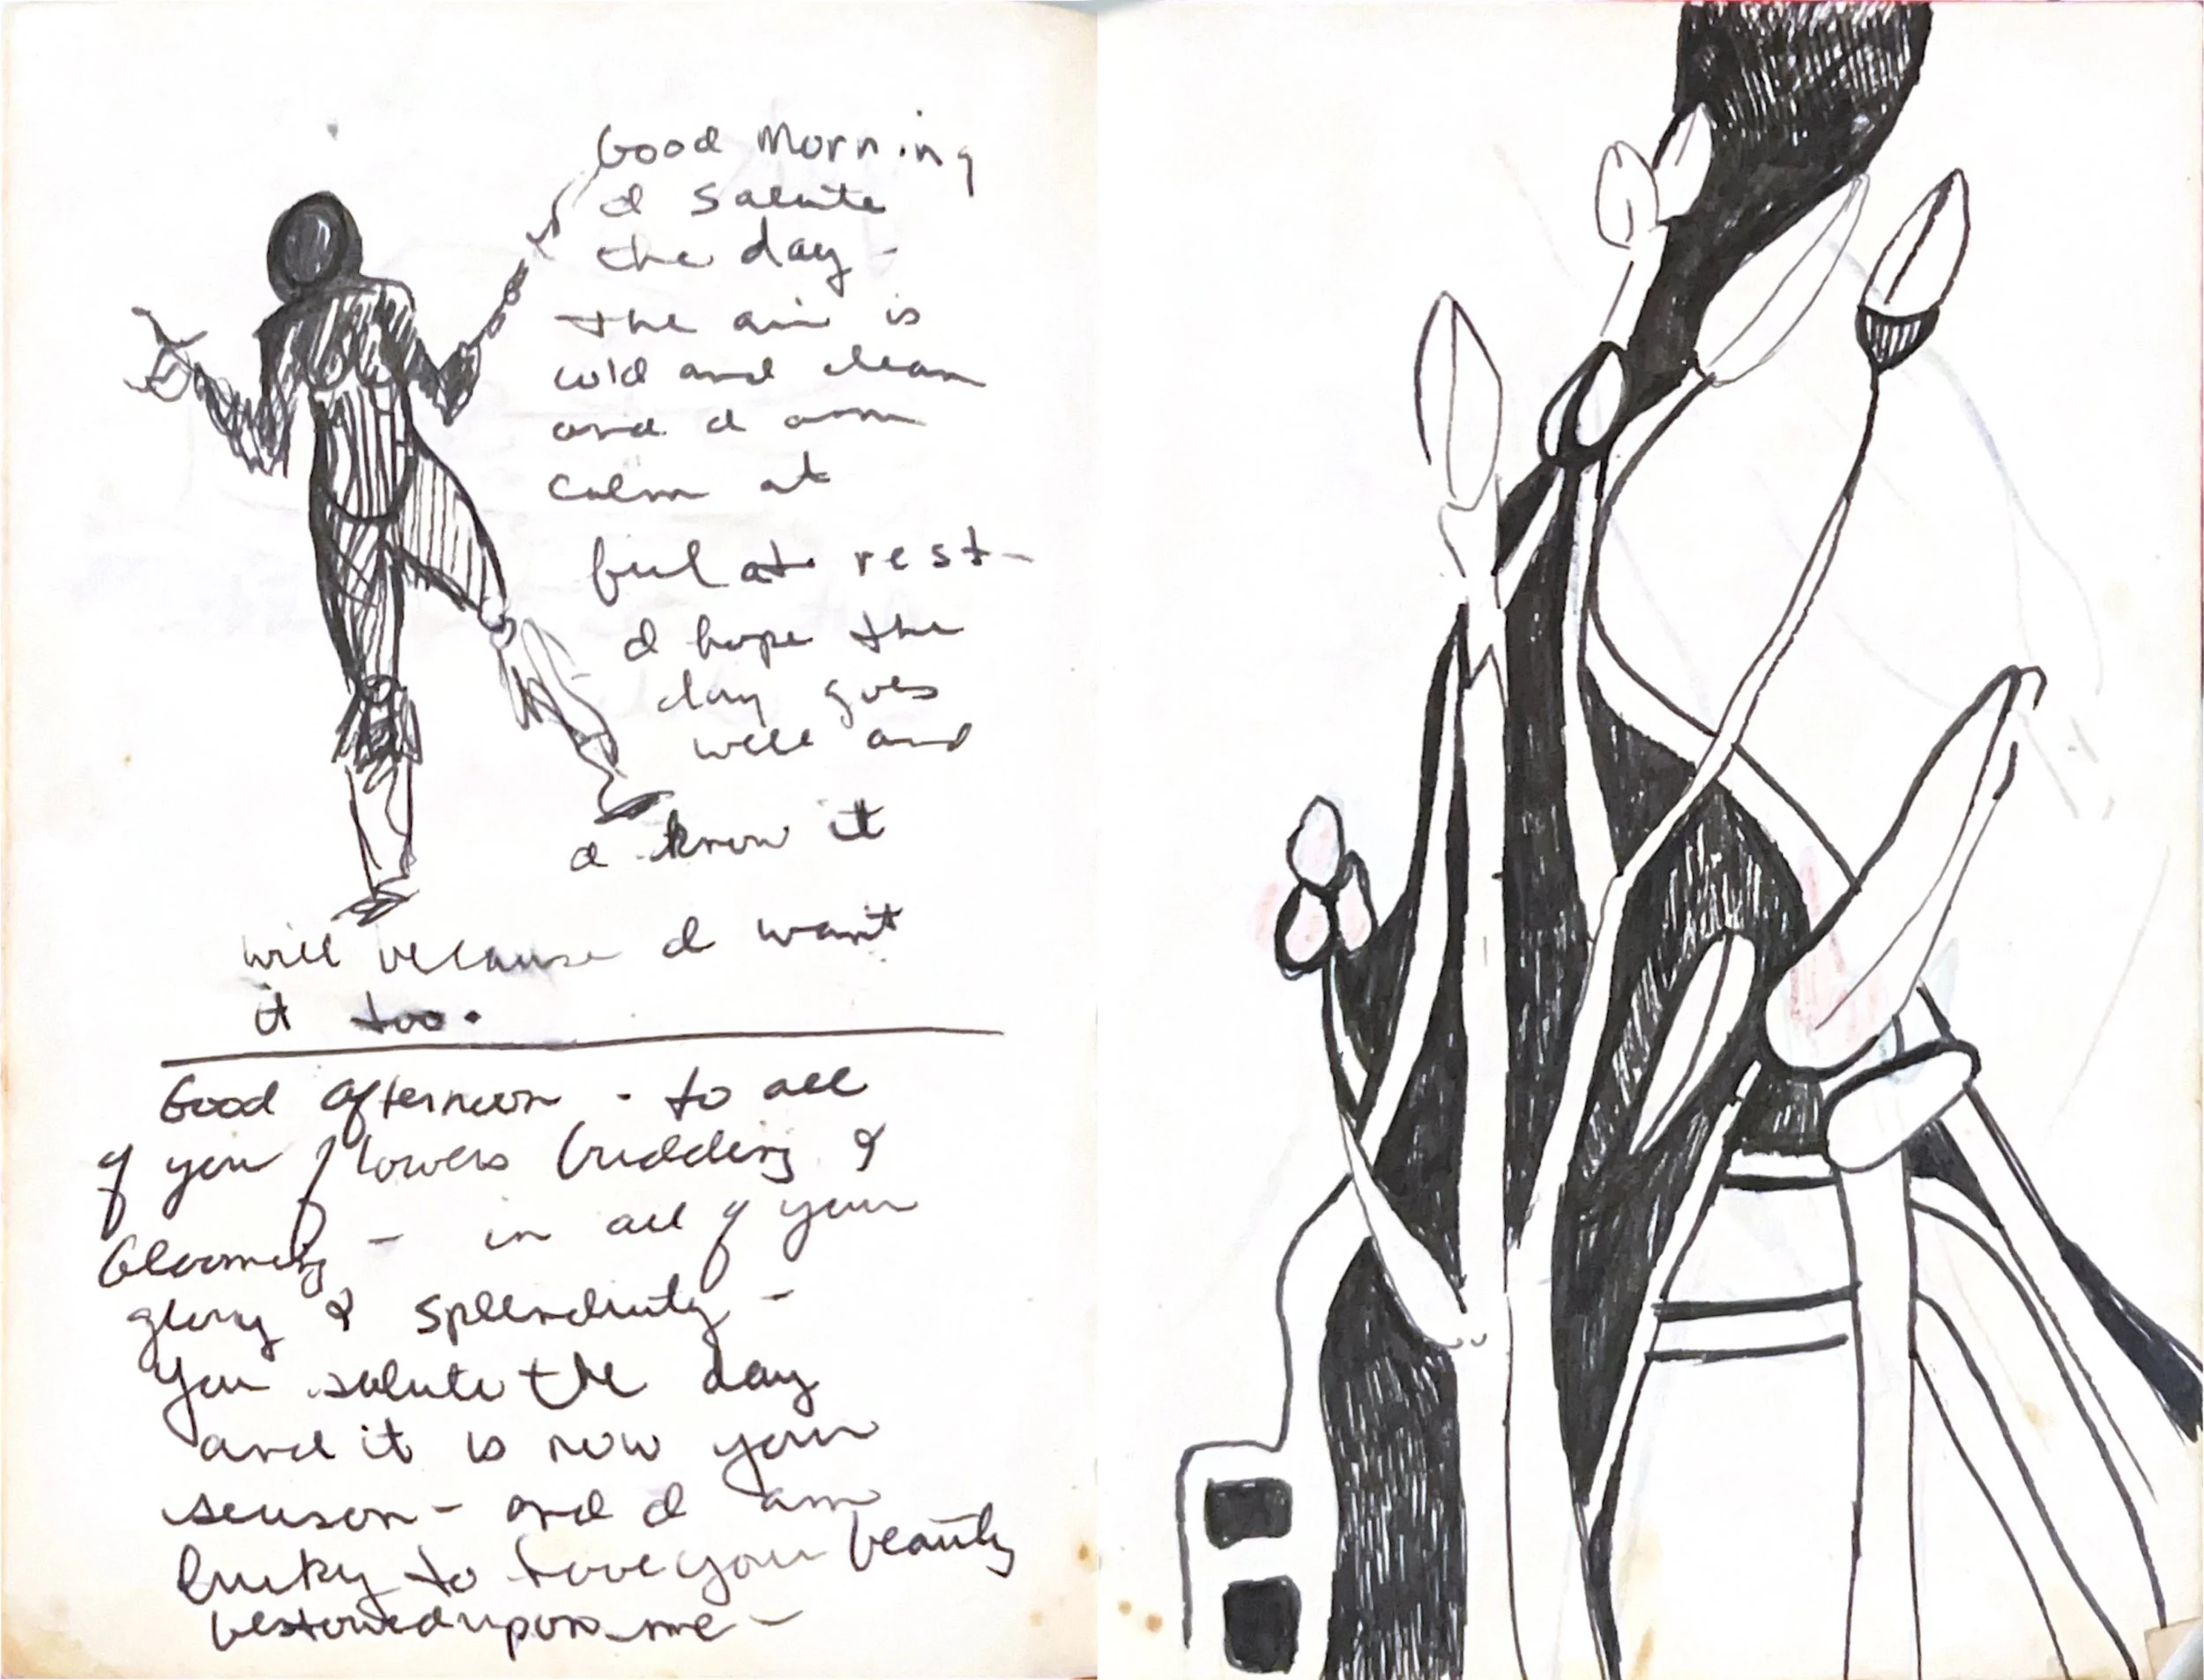 Good Morning
I salute
the day -
the air is
cold and clean
and I am
calm at
feel at rest -
I hope the
day goes
well and
I know it
will because I want
it too.
Good afternoon - to all
of you flowers budding &
blooming - in all of your
glory & splendidity -
you salute the day
and it is now your
season - and I am
lucky to have your beauty
bestowed upon me -